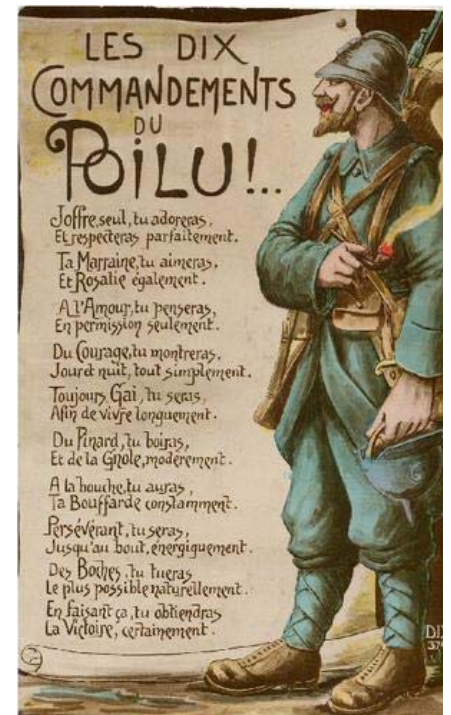 LES DIX
COMMANDEMENTS
DU
POILU!..
Joffre, seul, tu adoreras,
Et respecteras parfaitement.
Ta Marraine, tu aimeras,
Et Rosalie également.
A l'Amour, tu penseras,
En permission seulement.
Du Courage, tu montreras,
Jour et nuit, tout simplement.
Toujours Gai, tu seras,
Afin de vivre longuement.
Du Pinard, tu boiras,
Et de la Gnole, modérement.
A la bouche, tu auras,
Ta Bouffarde constamment.
Persévérant, tu seras,
Jusqu'au bout, énergiquement.
Des Boches, tu tueras
Le plus possible naturellement.
En faisant ça, tu obtiendras
La Victoire, certainement.
2